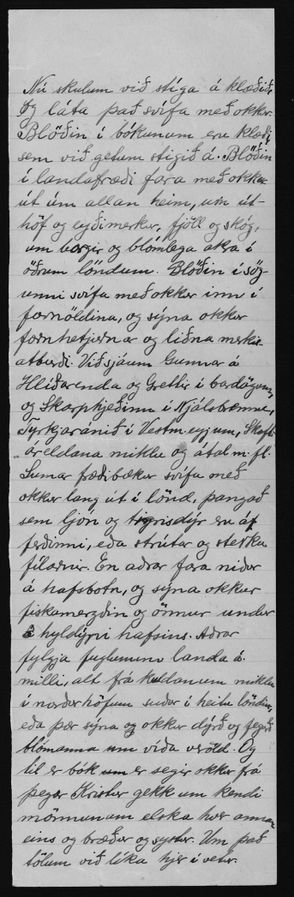 Nú skulum við stíga á klæðið,
og láta það svífa með okkur.
Blöðin í bókunum eru klæði,
sem við getum stigið á. Blöðin
í landafræði fara með okkur
út um allan heim, um út-
höf og eyðimerkur, fjöll og skóg,
um borgir og blómlega akra í
öðrum löndum. Blöðin í sög-
unni svífa með okkur inn í
fornöldina, og sýna okkur
fornhetjurnar og liðna merkis
atburði. Við sjáum Gunnar á
Hlíðarenda og Grettir í bardögum,
og Skarphjeðinn í Njálsbrennu,
Tyrkjaránið í Vestm.eyjum, Skaft-
áreldana miklu og ótal m. fl.
Sumar fræðibækur svífa með
okkur langt út í lönd, þangað
sem ljón og tígrisdýr eru á
ferðinni, eða strútar og sterku
fílarnir. En aðrar fara niður
á hafsbotn, og sýna okkur
fiskamergðin og önnur undur
í hyldýpi hafsins. Aðrar
fylgja fuglunum landa á
milli, alt frá kuldanum mikla
í norðurhöfum suður í heitu löndin,
eða þær sýna og okkur dýrð og fegurð
blómanna um víða veröld. Og
til er bók er segir okkur frá
þegar Kristur gekk um kendi
mönnunum elska hver annan
eins og bræður og systur. Um það
tölum við líka hjer í vetur.